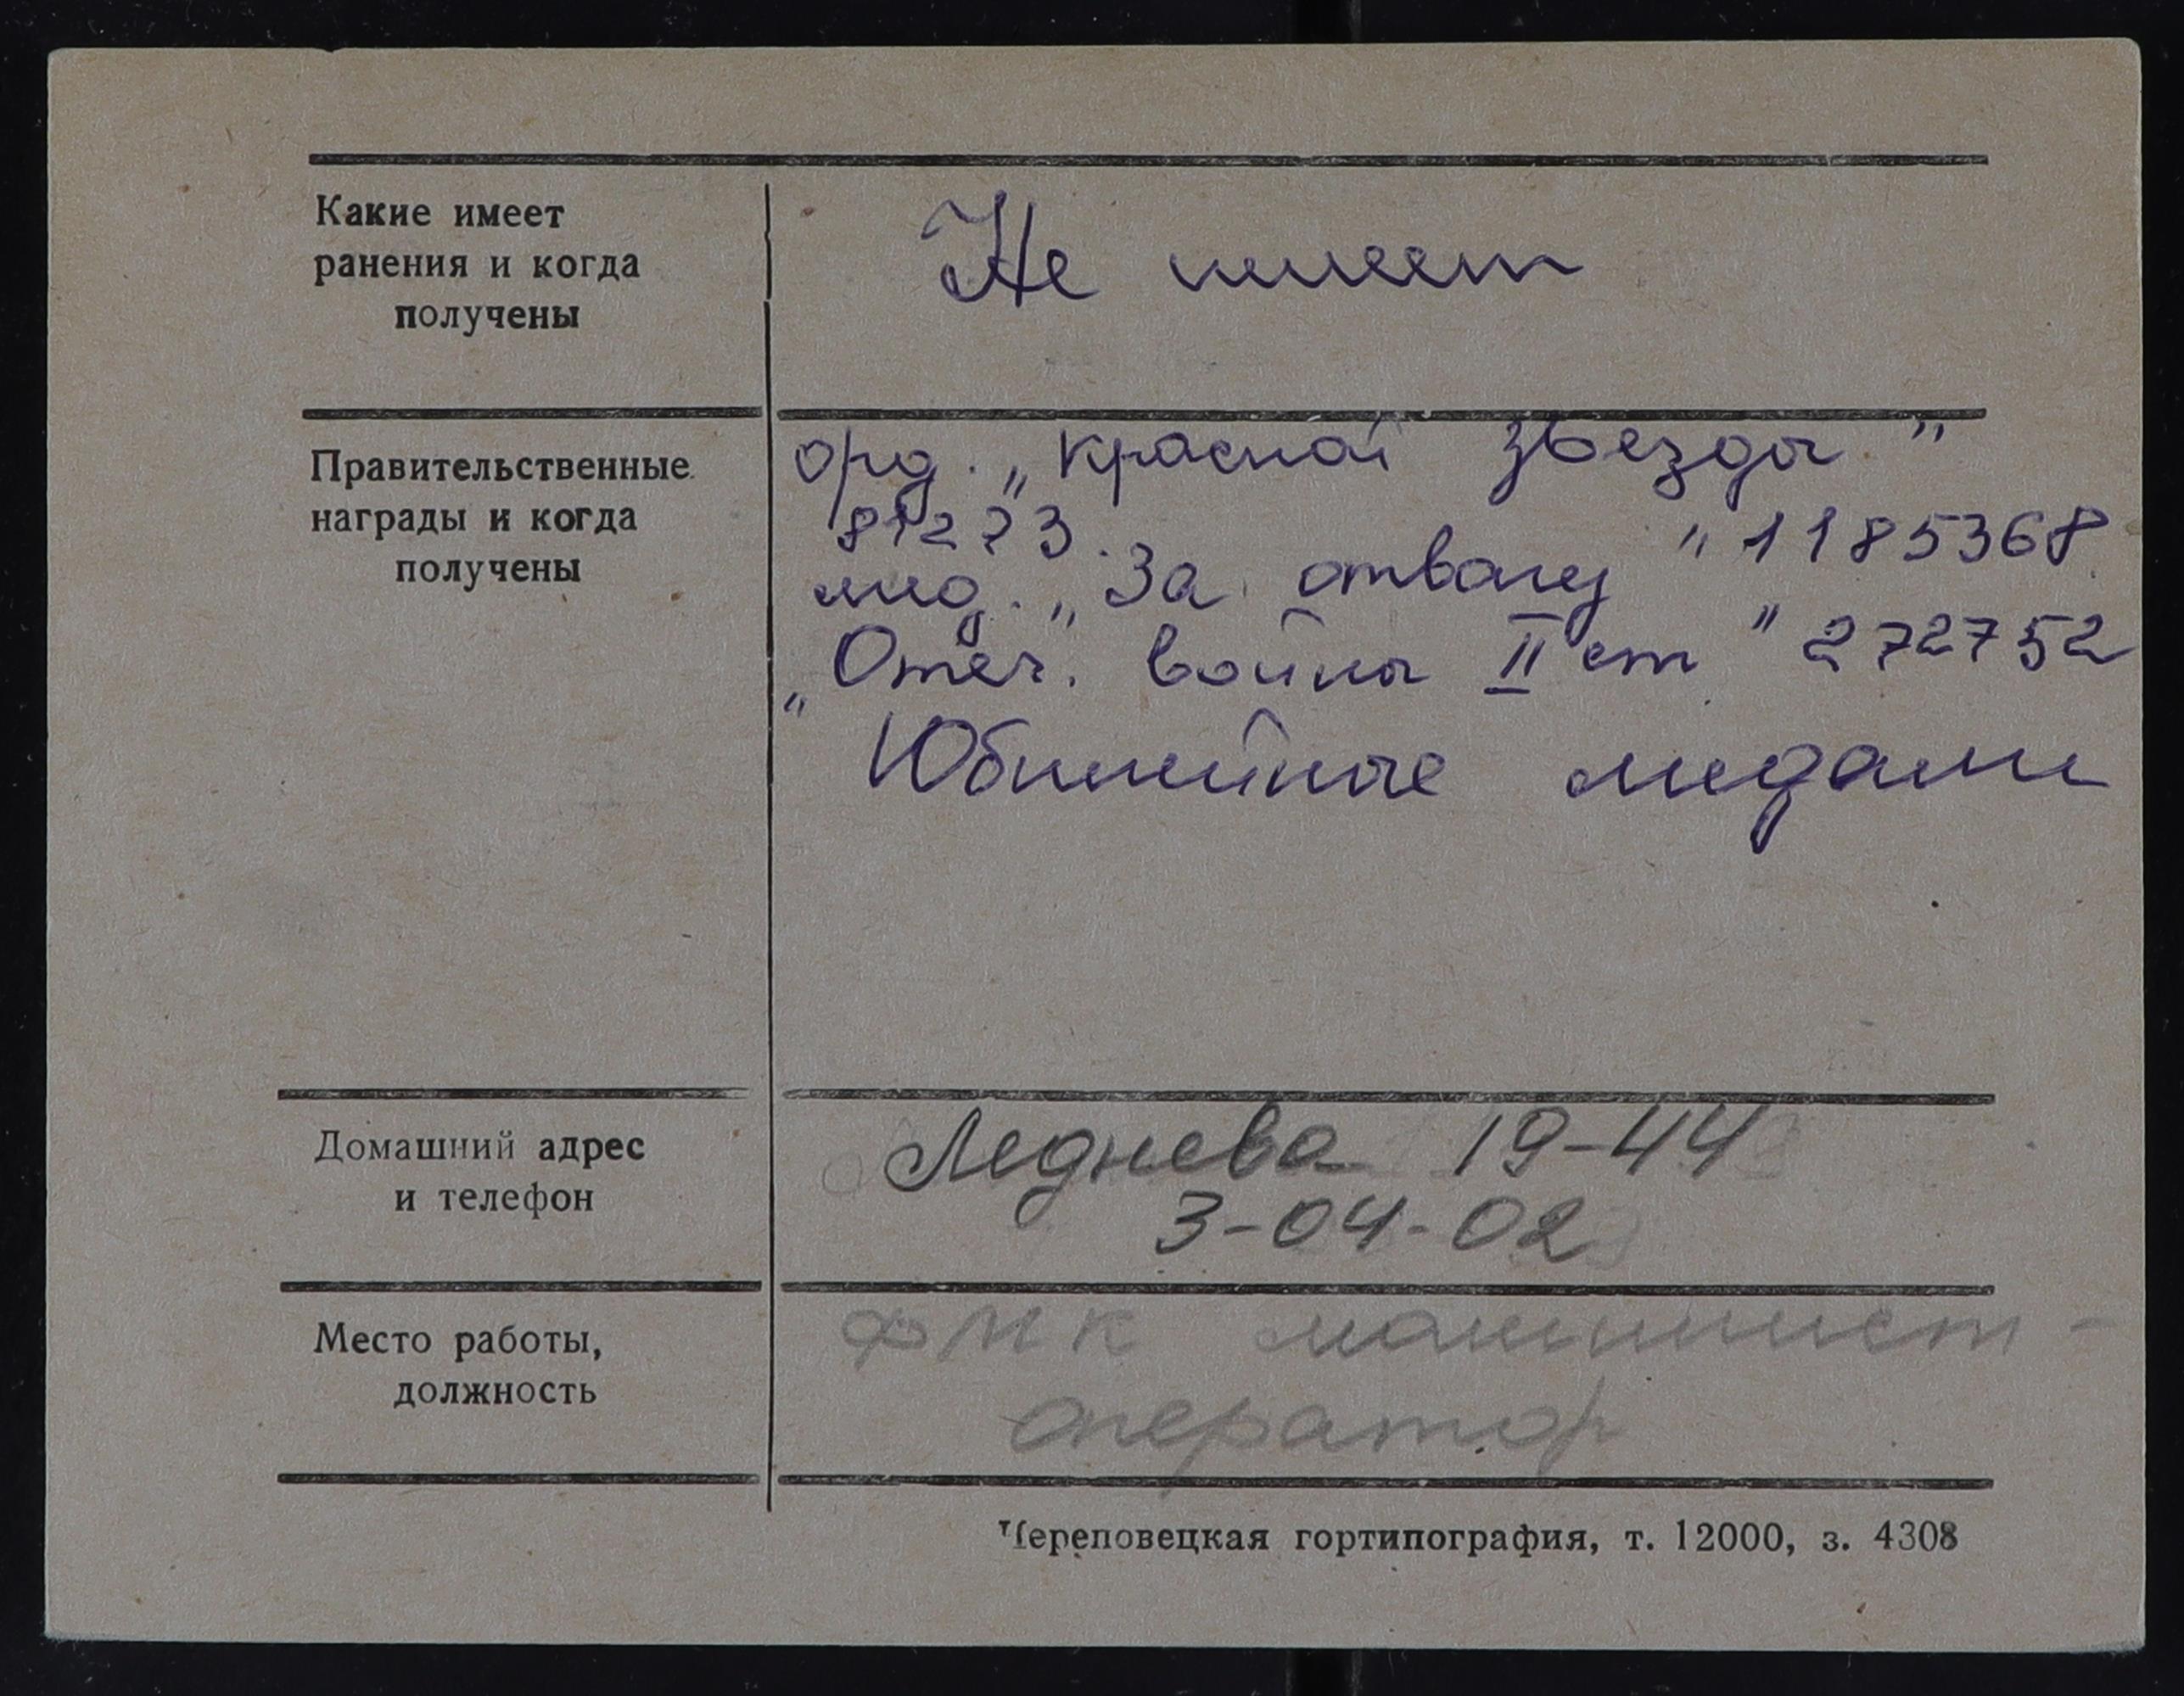 Какие имеет
ранения и когда
получены
Не имеет
Правительственные
награды и когда
получены
орд. „Красной звезды"
81273.
мед. „За отвагу" 1185368
„Отеч. войны II ст" 272752
Юбилейные медали
Домашний адрес
и телефон
Леднева 19-44
3-04-02
Место работы,
должность
ФМК машинист-
оператор
Череповецкая гортипография, т. 12000, з. 4308